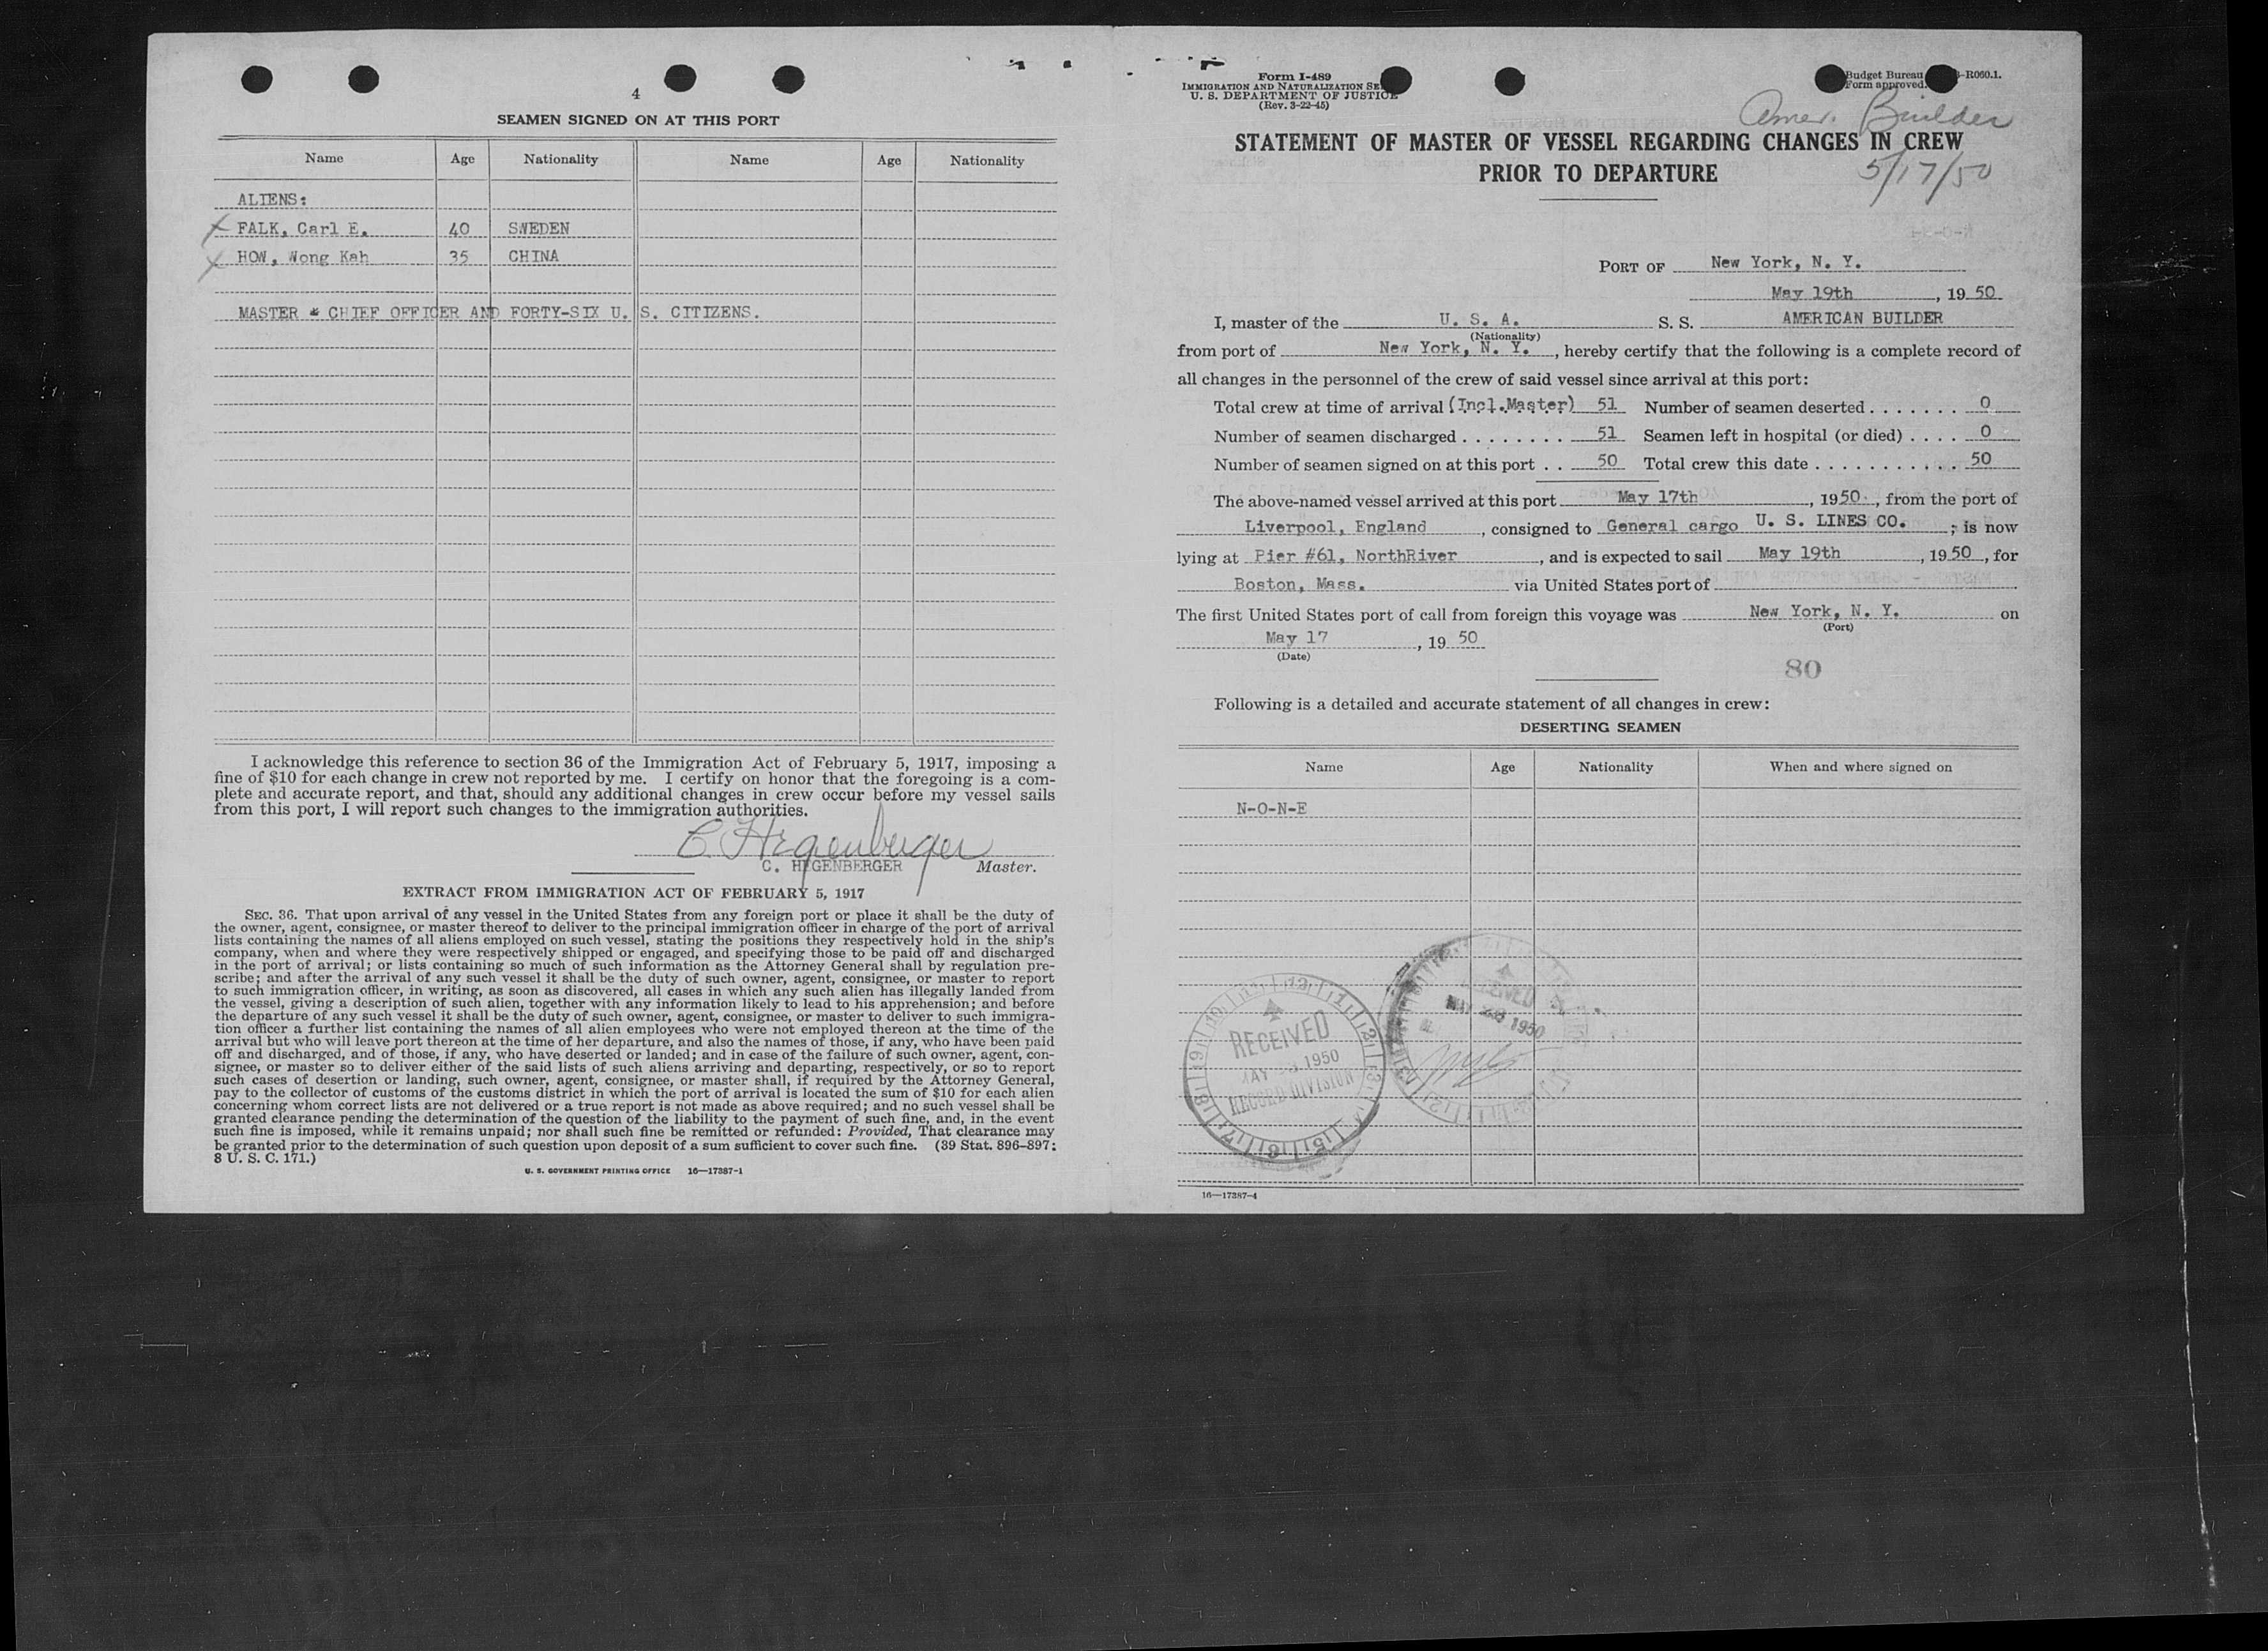 4
SEAMEN SIGNED ON AT THIS PORT
Name Age Nationality Name Age Nationality
ALIENS:
FALK, Carl E. 40 SWEDEN
HOW, Wong Kah 35 CHINA
MASTER & CHIEF OFFICER AND FORTY-SIX U. S. CITIZENS.
I acknowledge this reference to section 36 of the Immigration Act of February 5, 1917, imposing a
fine of $10 for each change in crew not reported by me. I certify on honor that the foregoing is a com-
plete and accurate report, and that, should any additional changes in crew occur before my vessel sails
from this port, I will report such changes to the immigration authorities.
C. Hegenberger
C. HEGENBERGER Master.
EXTRACT FROM IMMIGRATION ACT OF FEBRUARY 5, 1917
SEC. 36. That upon arrival of any vessel in the United States from any foreign port or place it shall be the duty of
the owner, agent, consignee, or master thereof to deliver to the principal immigration officer in charge of the port of arrival
lists containing the names of all aliens employed on such vessel, stating the positions they respectively hold in the ship's
company, when and where they were respectively shipped or engaged, and specifying those to be paid off and discharged
in the port of arrival; or lists containing so much of such information as the Attorney General shall by regulation pre-
scribe; and after the arrival of any such vessel it shall be the duty of such owner, agent, consignee, or master to report
to such immigration officer, in writing, as soon as discovered, all cases in which any such alien has illegally landed from
the vessel, giving a description of such alien, together with any information likely to lead to his apprehension; and before
the departure of any such vessel it shall be the duty of such owner, agent, consignee, or master to deliver to such immigra-
tion officer a further list containing the names of all alien employees who were not employed thereon at the time of the
arrival but who will leave port thereon at the time of her departure, and also the names of those, if any, who have been paid
off and discharged, and of those, if any, who have deserted or landed; and in case of the failure of such owner, agent, con-
signee, or master so to deliver either of the said lists of such aliens arriving and departing, respectively, or so to report
such cases of desertion or landing, such owner, agent, consignee, or master shall, if required by the Attorney General,
pay to the collector of customs of the customs district in which the port of arrival is located the sum of $10 for each alien
concerning whom correct lists are not delivered or a true report is not made as above required; and no such vessel shall be
granted clearance pending the determination of the question of the liability to the payment of such fine, and, in the event
such fine is imposed, while it remains unpaid; nor shall such fine be remitted or refunded: Provided, That clearance may
be granted prior to the determination of such question upon deposit of a sum sufficient to cover such fine. (39 Stat. 896-897;
8 U. S. C. 171.)
U. S. GOVERNMENT PRINTING OFFICE 16—17387-1
Form I-489
IMMIGRATION AND NATURALIZATION
U. S. DEPARTMENT OF JUSTICE
(Rev. 3-22-45)
Budget Bureau -R060.1.
Form approved.
Amer. Builder
STATEMENT OF MASTER OF VESSEL REGARDING CHANGES IN CREW
PRIOR TO DEPARTURE
5/17/50
PORT OF New York, N. Y.
May 19th, 1950
I, master of the U. S. A. S. S. AMERICAN BUILDER
(Nationality)
from port of New York, N. Y., hereby certify that the following is a complete record of
all changes in the personnel of the crew of said vessel since arrival at this port:
Total crew at time of arrival (Incl.Master) 51 Number of seamen deserted . . . . . . . 0
Number of seamen discharged . . . . . . . . 51 Seamen left in hospital (or died) . . . . 0
Number of seamen signed on at this port . . 50 Total crew this date . . . . . . . . . . . 50
The above-named vessel arrived at this port May 17th, 1950, from the port of
Liverpool, England, consigned to General cargo U. S. LINES CO.; is now
lying at Pier #61, NorthRiver, and is expected to sail May 19th, 1950, for
Boston, Mass. via United States port of
The first United States port of call from foreign this voyage was New York, N. Y. on
(Port)
May 17, 1950
(Date)
80
Following is a detailed and accurate statement of all changes in crew:
DESERTING SEAMEN
Name Age Nationality When and where signed on
N-O-N-E
RECEIVED
MAY 1950
RECEIVED
MAY 1950
RECORD DIVISION
16—17387-4